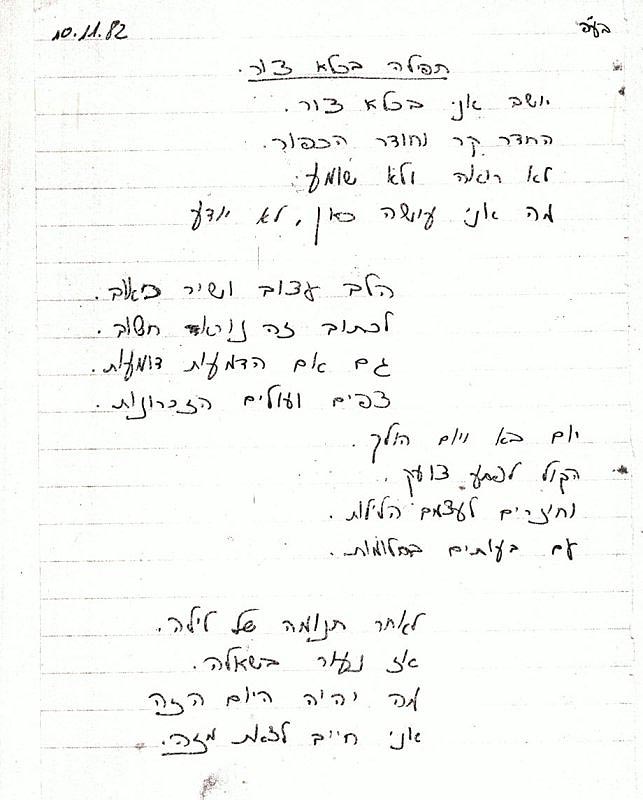 בע"פ 10.11.82
תפילה בכלא צור.
יושב אני בכלא צור.
החדר קר וחודר הכפור.
לא רואה ולא שומע
מה אני עושה כאן, לא יודע
הלב עצוב ושיר כאוב.
לכתוב זה נורא חשוב.
גם אם הדמעות דומעות.
צפים ועולים הזכרונות.
יום בא ויום הולך.
הקול לפתע צועק.
וחוזרים לעצמם הלילות.
עם בעותים בחלומות.
לאחר תנומה של לילה.
אז נעור בשאלה.
מה יהיה היום הזה
אני חייב לצאת מזה.